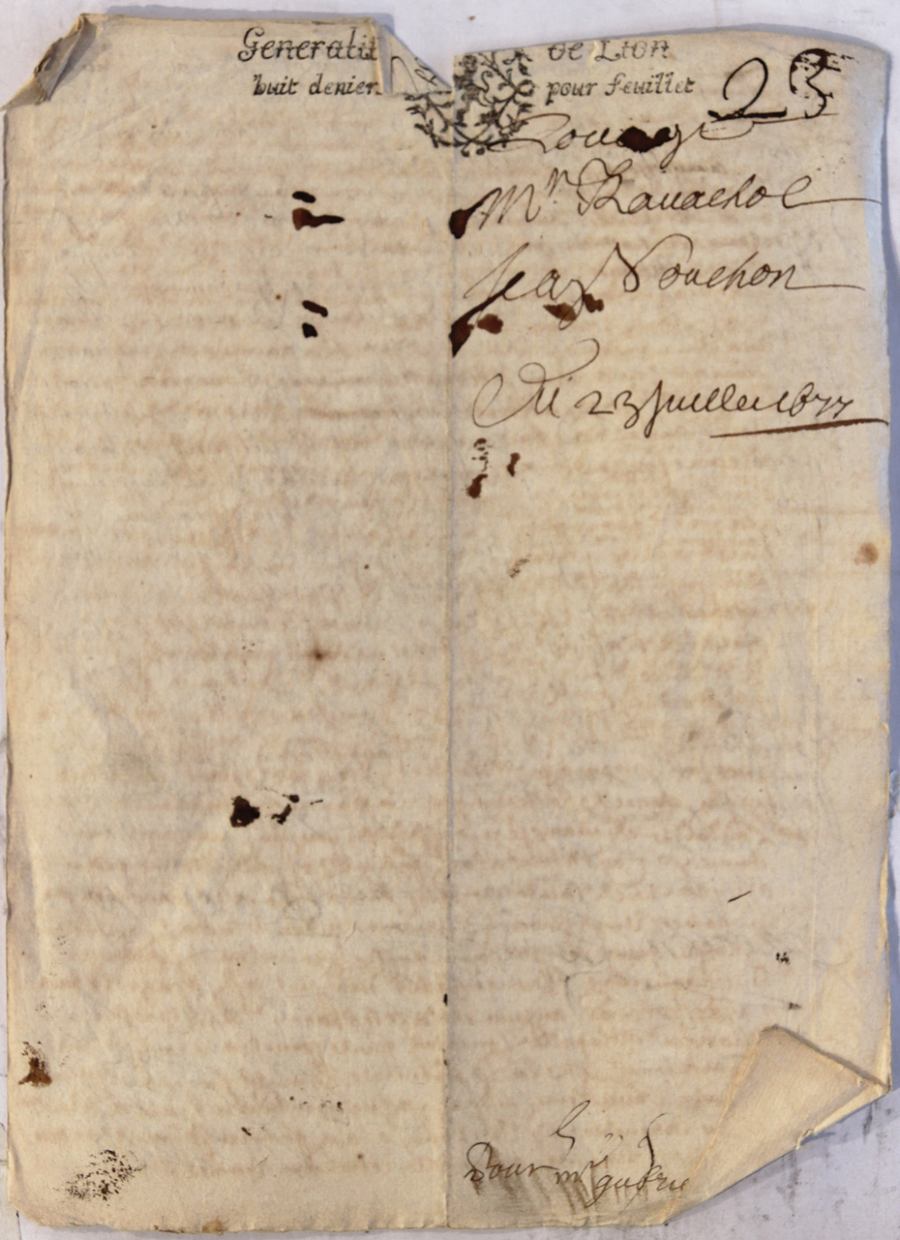 Generalit de Lion
huit deniers pour feuillet
23
Louage
Mr Ravachol
Jean Vouchon
Du 23 Juillet 1677
Pour mre